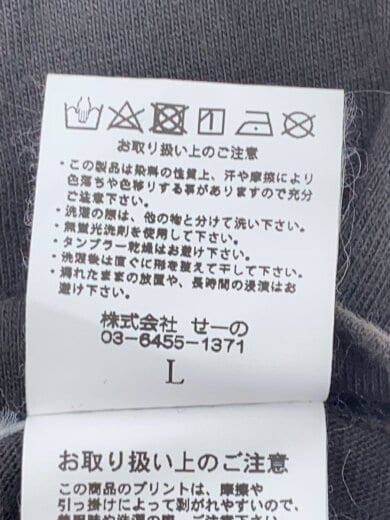 お取り扱い上のご注意
・この製品は染料の性質上、汗や摩擦により
色落ちや色移りする事がありますので充分
ご注意下さい。
・洗濯の際は、他の物と分けて洗い下さい。
・無蛍光洗剤を使用して下さい。
・タンブラー乾燥はお避け下さい。
・洗濯後は直ぐに形を整えて干して下さい。
・濡れたままの放置や、長時間の浸漬はお
避け下さい。
株式会社 せーの
03-6455-1371
L
お取り扱い上のご注意
この商品のプリントは、摩擦や
引っ掛けによって剥がれやすいので、